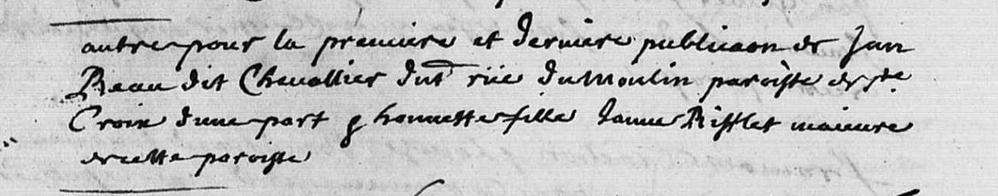 autre pour la premiere et derniere publicaon de Jan
Beau dit Chevallier dud rüe du Moulin paroisse de ste
Croix dune part & honneste fille Janne Rifflet maieure
de cette paroisse